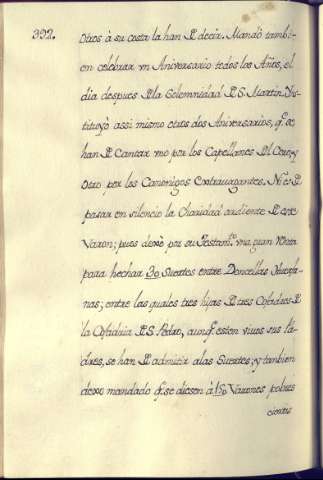 392.
otros à su costa la han de decir. Mandò tambi-
en celebrar vn Aniversario todos los Años, el
dia despues de la Solemnidad de S. Martin. Ins-
tituyò assi mismo otros dos Aniversarios, q.e se
han de Cantar vno por los Capellanes del Coro, y
otro por los Canonigos Extravagantes. No es de
pasar en silencio la Charidad ardiente de este
Varon; pues dexò por su Testam.to vna gran Renta
para hechar 30 Suertes entre Doncellas Huerfa-
nas; entre las quales tres hijas de tres Cofadres de
la Cofadria de S. Pedro, aunq.e esten vivos sus Pa-
dres, se han de admitir a las Suertes; y tambien
dexo mandado q.e se diesen à 150 Varones pobres
ciertas